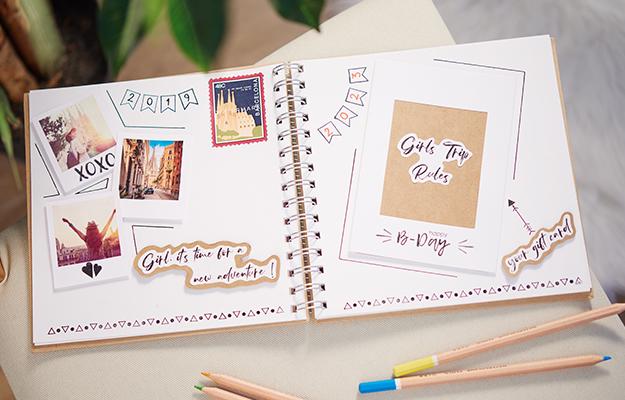 2019
BARCELONA
XOXO
Girl, it's time for a
new adventure!
2023
Girls Trip
Rules
happy
B-Day
your gift card